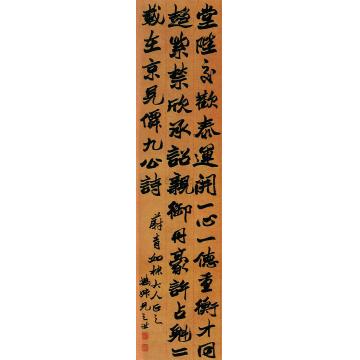 堂陛交歡泰運開一心一德重衡才同
趨紫禁欣承詔親御丹豪許占魁二
載在京見儤九公詩
蔚青如棣大人正之